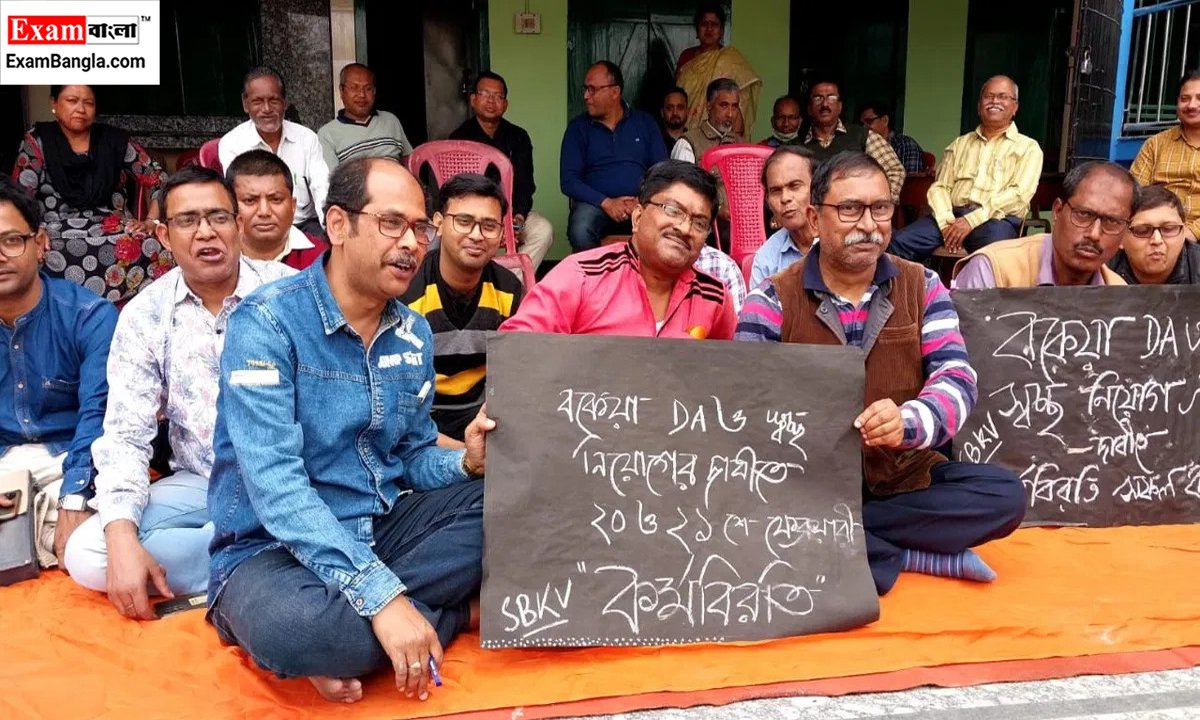 Exam বাংলা ™
ExamBangla.com
AMP SET
বকেয়া DA ও স্বচ্ছ
নিয়োগের দাবীতে
২০ ও ২১ শে ফেব্রুয়ারী
SBKV "কর্মবিরতি"
"বকেয়া DA
স্বচ্ছ নিয়োগ
SBKV
দাবীতে
বিরতি সফল